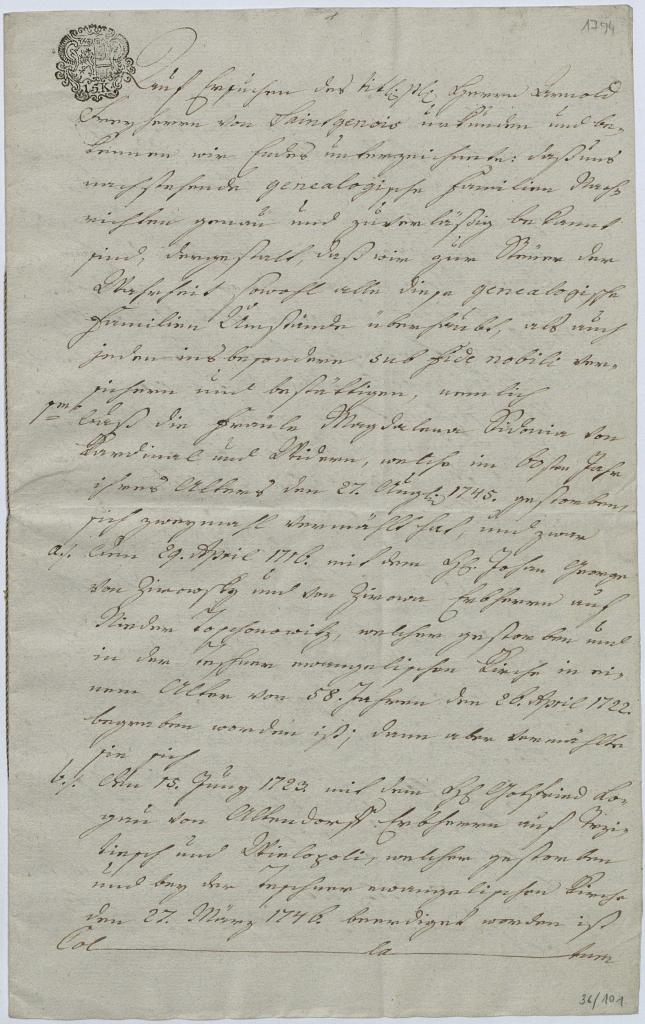 1794
15K
Auf Ersuchen des titl: pl: Herrn Arnold
Freyherrn von Saintgenois urkunden und be-
kennen wir Endes unterzeichnete: daß uns
nachstehende genealogische Familien Nach-
richten genau und zuverläßig bekannt
sind, dergestalt, daß wir zur Steuer der
Wahrheit sowohl alle diese genealogische
Familien Umstände überhaubt, als auch
jeden insbesondere sub fide nobili ver-
sichern und bestättigen, nemlich
daß die Fräule Magdalena Sidonia von
Kardinal und Widern, welche im 60sten Jahr
ihres Alters den 27. Aug: 1745. gestorben,
sich zweymahl vermählt hat, und zwar
a.) den 29. April 1716. mit dem H: Johan George
von Zirowsky und von Zirowa Erbherrn auf
Nieder Toschonowitz, welcher gestorben und
in der Teschner evangelischen Kirche in ei-
nem Alter von 58. Jahren den 26. April 1722.
begraben worden ist; dann aber vermählte
sie sich
b.) den 15. Juny 1723. mit dem H: Gottfried
von Altendorff Erbherrn auf
und Wielopoli, welcher gestorben
und bey der Teschner evangelischen Kirche
den 27. März 1746. beerdiget worden ist
Col la tum
36/101